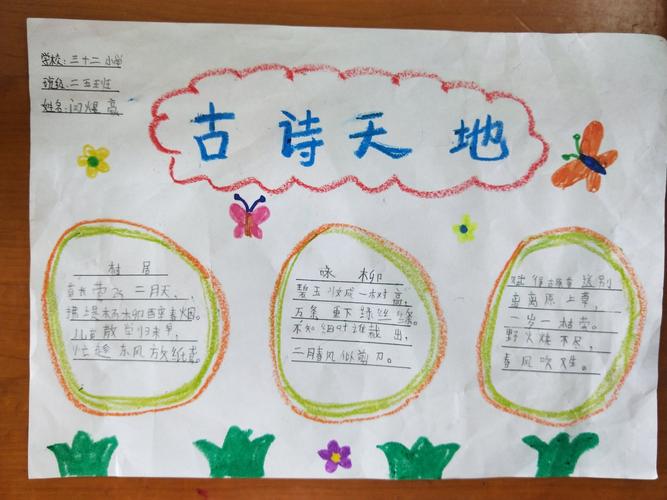 学校:三十二小学
班级:二五班
姓名:闫
古诗天地
村居
草长莺飞二月天,
拂堤杨柳醉春烟。
儿童散学归来早,
忙趁东风放纸鸢。
咏柳
碧玉妆成一树高,
万条垂下绿丝绦。
不知细叶谁裁出,
二月春风似剪刀。
赋得古原草送别
离离原上草,
一岁一枯荣。
野火烧不尽,
春风吹又生。